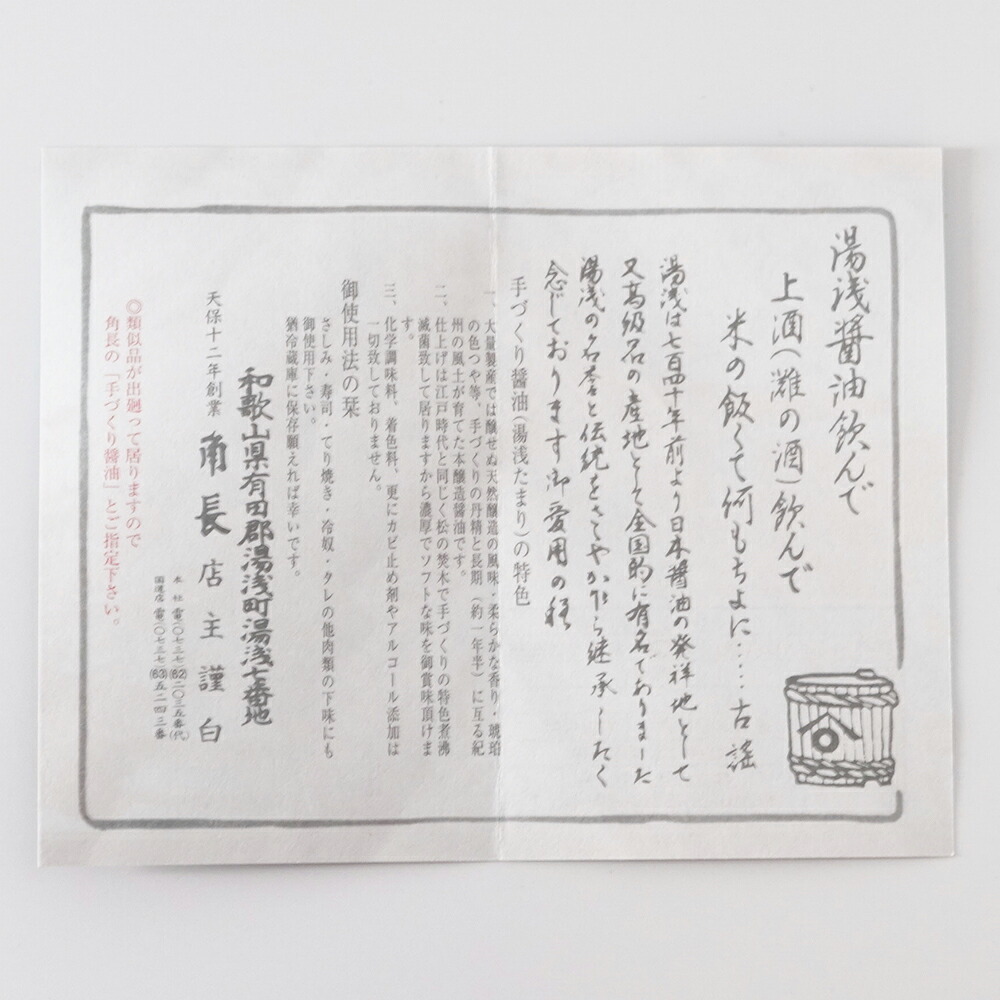 湯浅醤油飲んで
上酒(灘の酒)飲んで
米の飯くて何もちよに‥‥‥古謡
湯浅は七百四十年前より日本醤油の発祥地として
又高級品の産地として全国的に有名でありました
湯浅の名誉と伝統をさゝやか乍ら継承したく
念じております御愛用の程
手づくり醤油(湯浅たまり)の特色
一、大量製産では醸せぬ天然醸造の風味・柔らかな香り・琥珀
の色つや等、手づくりの丹精と長期(約一年半)に亙る紀
州の風土が育てた本醸造醤油です。
二、仕上げは江戸時代と同じく松の焚木で手づくりの特色煮沸
滅菌致して居りますから濃厚でソフトな味を御賞味頂けま
す。
三、化学調味料、着色料、更にカビ止め剤やアルコール添加は
一切致しておりません。
御使用法の栞
さしみ・寿司・てり焼き・冷奴・タレの他肉類の下味にも
御使用下さい。
猶冷蔵庫に保存願えれば幸いです。
和歌山県有田郡湯浅町湯浅七番地
天保十二年創業 角長 店主謹白
本社 電(〇七三七)(62)二〇三五番(代)
国道店 電(〇七三七)(63)五二四三番
◎類似品が出廻って居りますので
角長の「手づくり醤油」とご指定下さい。